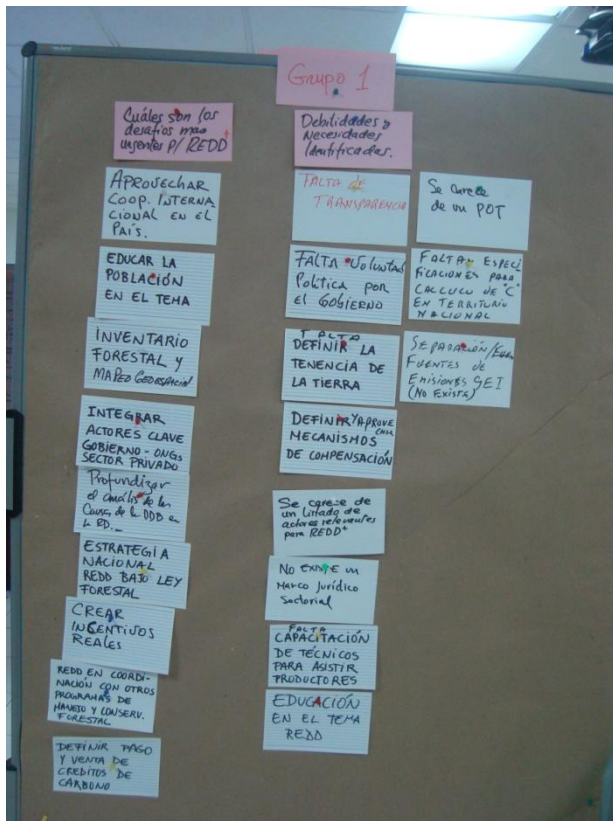 Grupo 1
Cuáles son los
desafios mas
urgentes P/REDD+
APROVECHAR
COOP. INTERNA
CIONAL EN EL
PAÍS.
EDUCAR LA
POBLACIÓN
EN EL TEMA
INVENTARIO
FORESTAL Y
MAPEO GEOESPACIAL
INTEGRAR
ACTORES CLAVE
GOBIERNO-ONGs
SECTOR PRIVADO
Profundizar
el análisis de las
Causas de la DDB en
la RD.
ESTRATEGIA
NACIONAL
REDD BAJO LEY
FORESTAL
CREAR
INCENTIVOS
REALES
REDD EN COORDI-
NACIÓN CON OTROS
PROGRAMAS DE
MANEJO Y CONSERV.
FORESTAL
DEFINIR PAGO
Y VENTA DE
CREDITOS DE
CARBONO
Debilidades y
Necesidades
Identificadas.
FALTA de
TRANSPARENCIA
FALTA Voluntad
Política por
el GOBIERNO
FALTA
DEFINIR LA
TENENCIA DE
LA TIERRA
DEFINIR Y APROVE
CHAR
MECANISMOS
DE COMPENSACIÓN
Se carece de
un listado de
actores relevantes
para REDD+
No EXISTE un
Marco Jurídico
Sectorial
FALTA
CAPACITACIÓN
DE TÉCNICOS
PARA ASISTIR
PRODUCTORES
EDUCACIÓN
EN EL TEMA
REDD
Se carece
de un POT
FALTAN ESPECI
FICACIONES PARA
CALCULO DE "C"
EN TERRITORIO
NACIONAL
SEPARACIÓN/
FUENTES DE
EMISIONES GEI
(NO EXISTE)